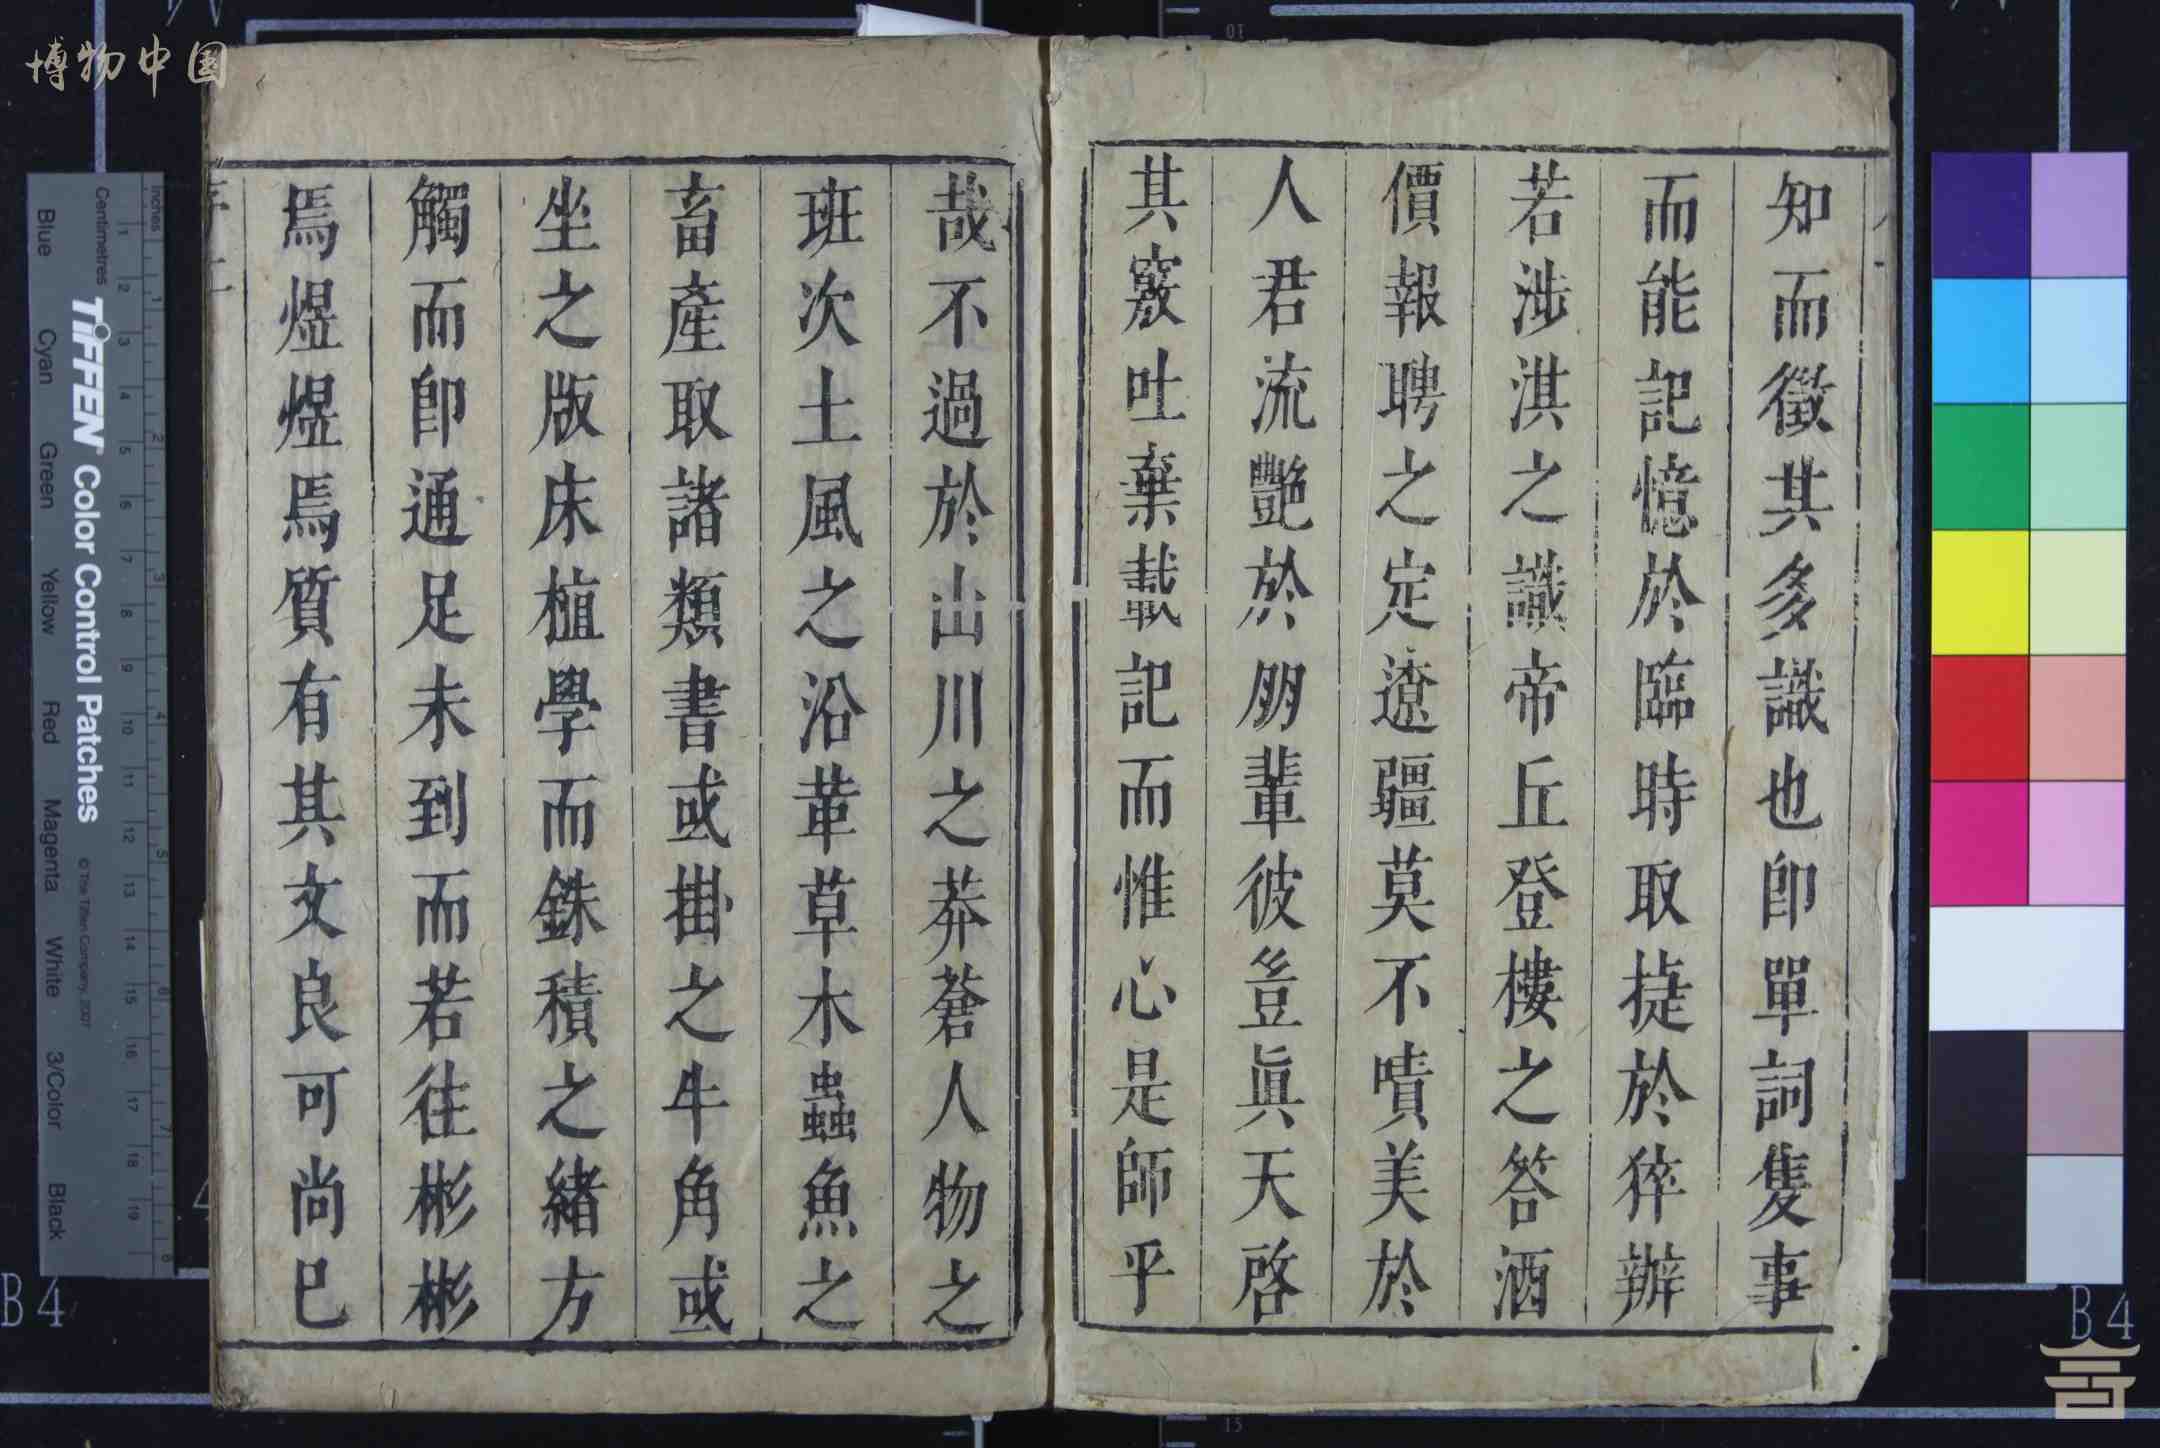 博物中国
知而徵其多識也即單詞隻事
而能記憶於臨時取捷於猝辦
若涉淇之識帝丘登樓之答酒
價報聘之定遼疆莫不嘖美於
人君流艷於朋輩彼豈眞天啓
其竅吐棄載記而惟心是師乎
哉不過於山川之莽蒼人物之
班次土風之沿革草木蟲魚之
畜產取諸類書或掛之牛角或
坐之版床植學而銖積之緒方
觸而即通足未到而若往彬彬
焉煜煜焉質有其文良可尚巳
Inches
Centimetres
TIFFEN Color Control Patches
© The Tiffen Company, 2007
Blue Cyan Green Yellow Red Magenta White 3/Color Black
1 2 3 4 5 6 7 8 9 10 11 12 13 14 15 16 17 18 19
B4
B4
10
15